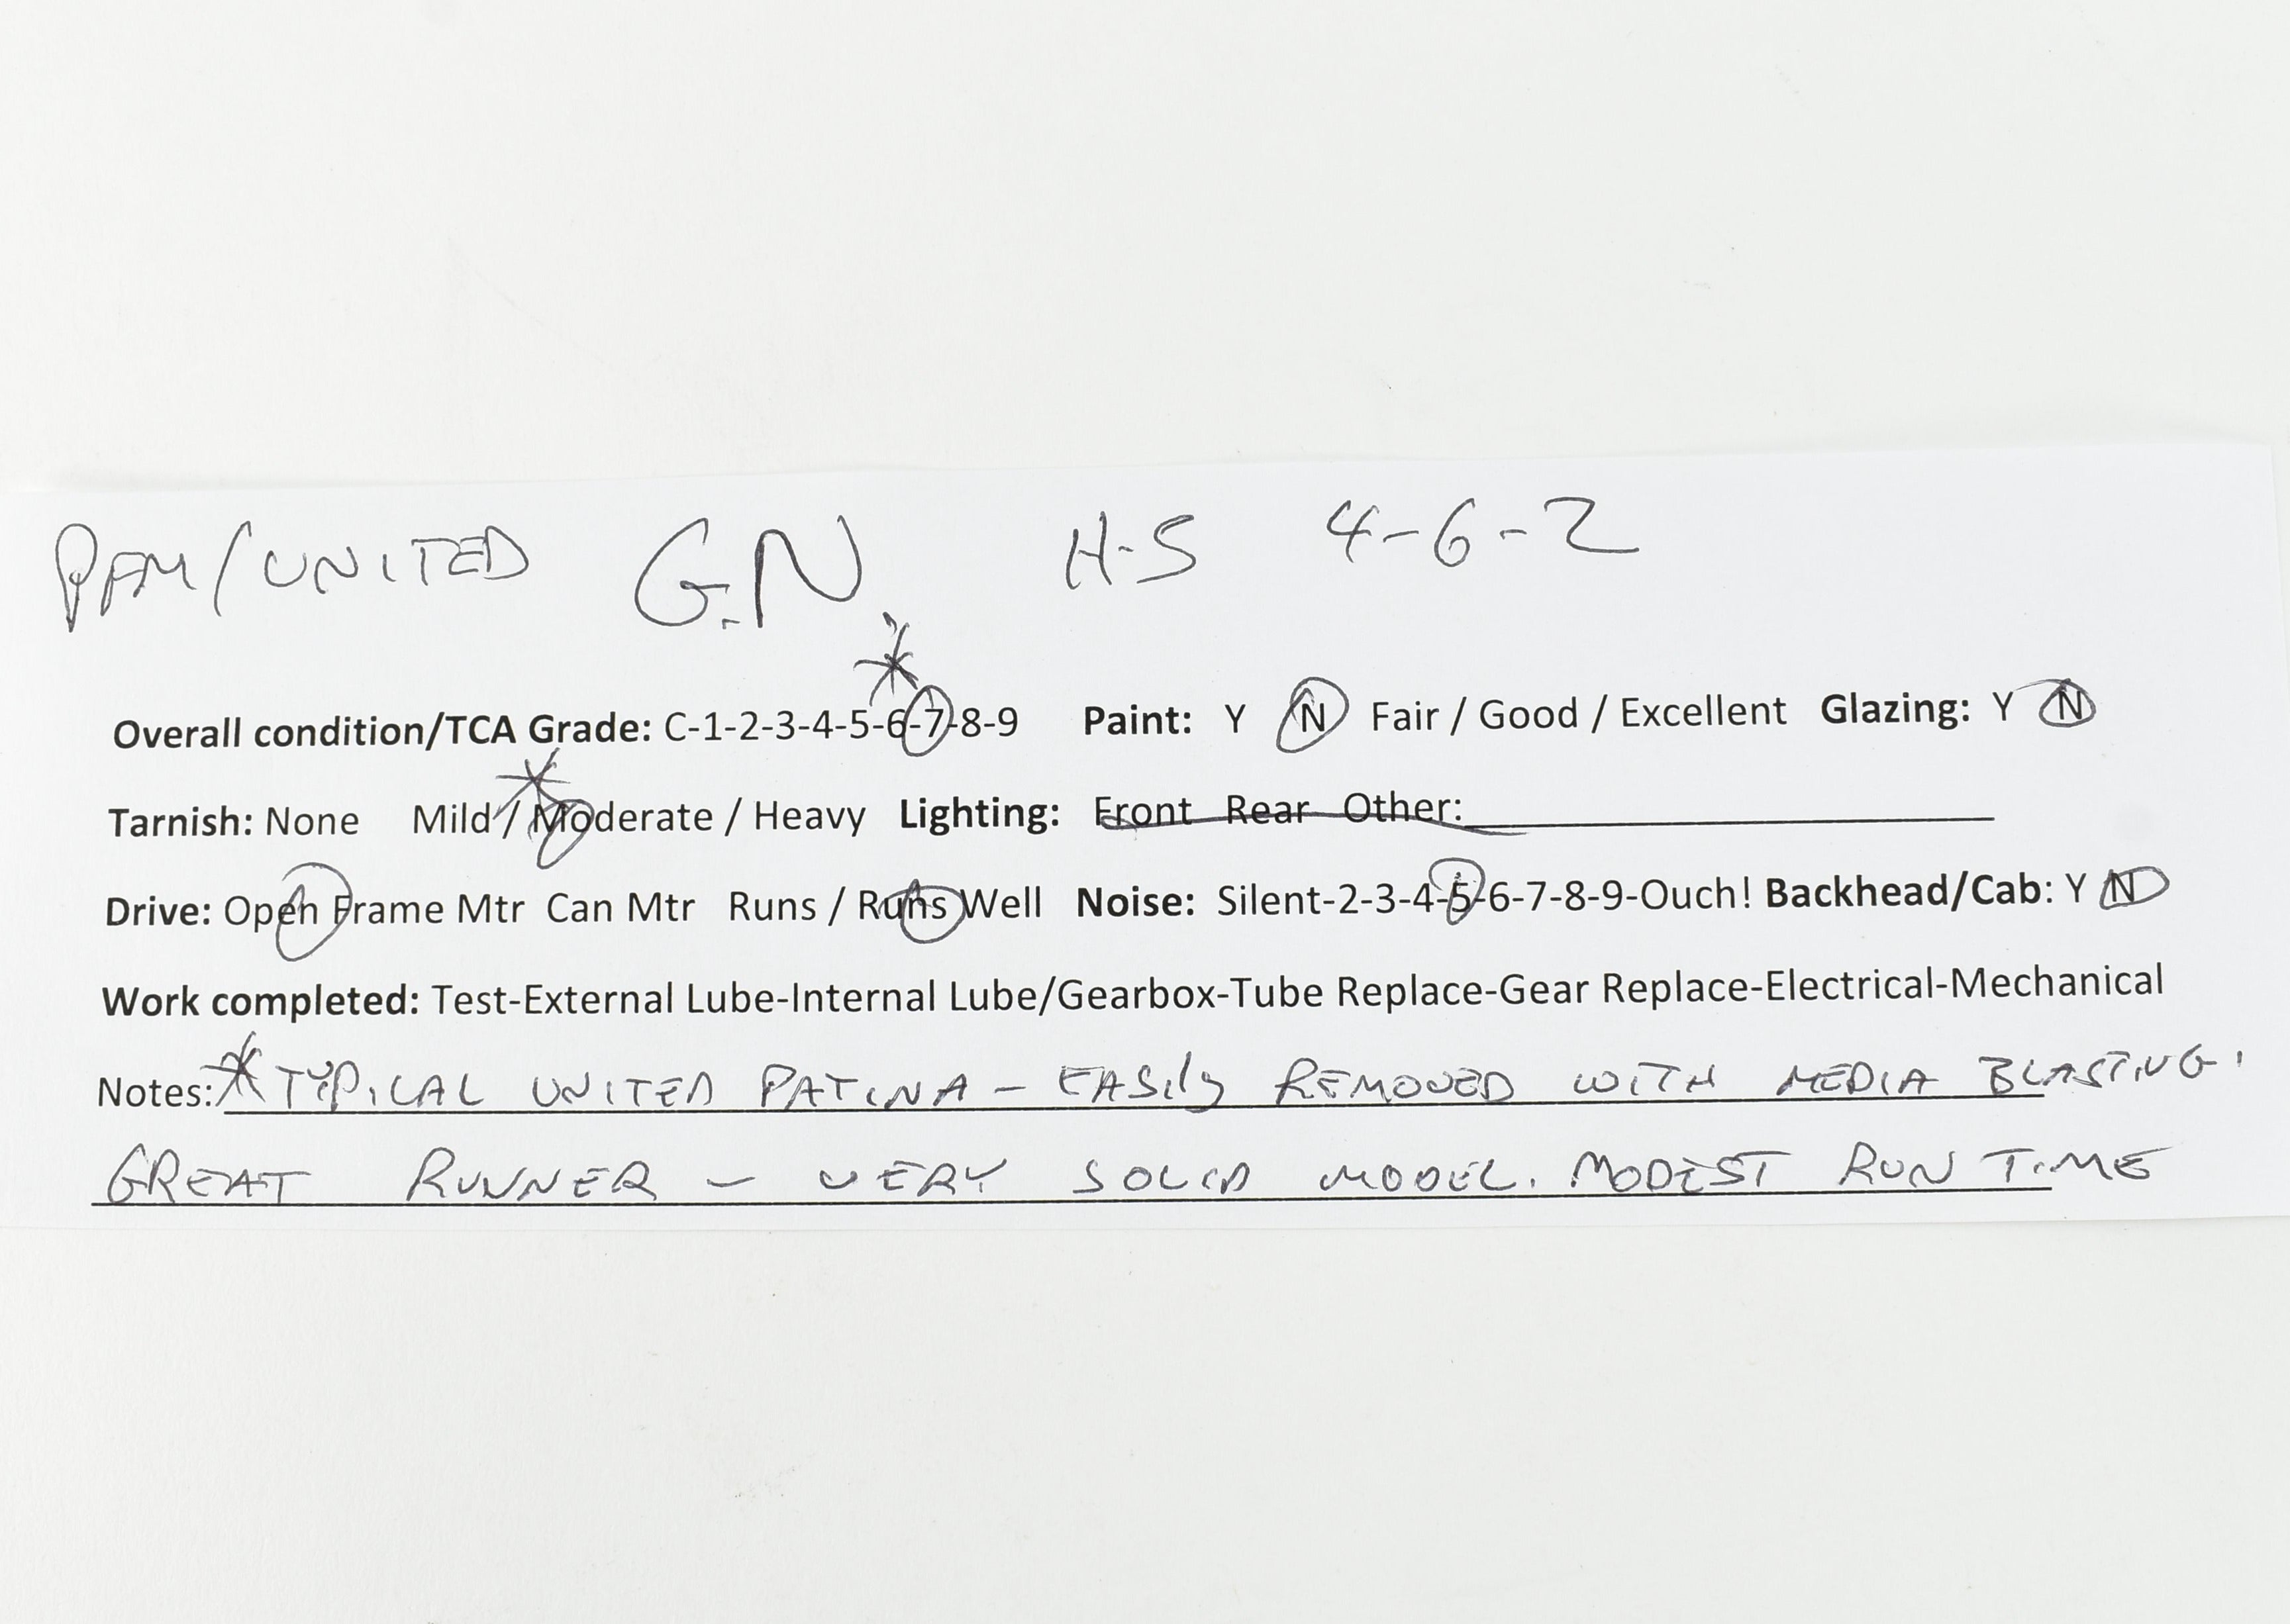 PFM/UNITED G.N. H-5 4-6-2
Overall condition/TCA Grade: C-1-2-3-4-5-6-7-8-9 Paint: Y N Fair / Good / Excellent Glazing: Y N
Tarnish: None Mild / Moderate / Heavy Lighting: Front Rear Other:
Drive: Open Frame Mtr Can Mtr Runs / Runs Well Noise: Silent-2-3-4-5-6-7-8-9-Ouch! Backhead/Cab: Y N
Work completed: Test-External Lube-Internal Lube/Gearbox-Tube Replace-Gear Replace-Electrical-Mechanical
Notes: * TYPICAL UNITED PATINA - EASILY REMOVED WITH MEDIA BLASTING.
GREAT RUNNER - VERY SOLID MODEL. MODEST RUN TIME